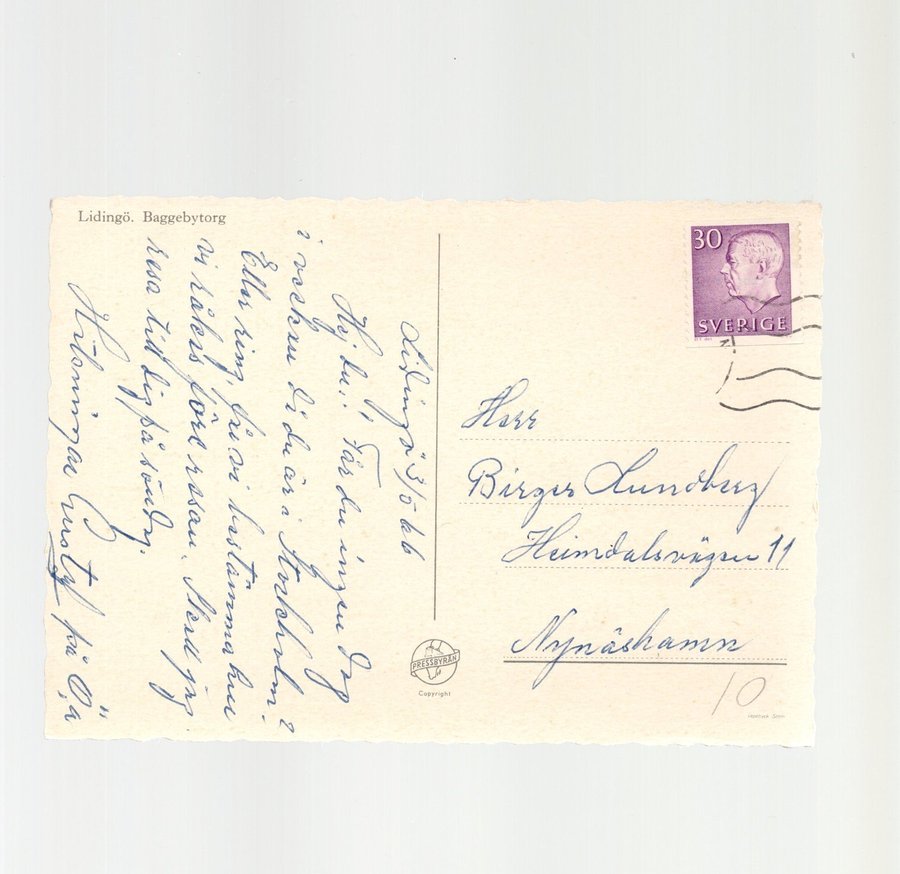 Lidingö. Baggebytorg
Lidingö 3/5 66
Hej du! Får du ingen dag
i veckan då du är i Stockholm?
Eller ring, få vi bestämma hur
vi råkas före resan. Skall jag
resa till dig på sönd.
Hälsningar Gustaf på Ön
30
SVERIGE
Herr
Birger Lundberg
Heimdalsvägen 11
Nynäshamn
PRESSBYRÅN
Copyright
10